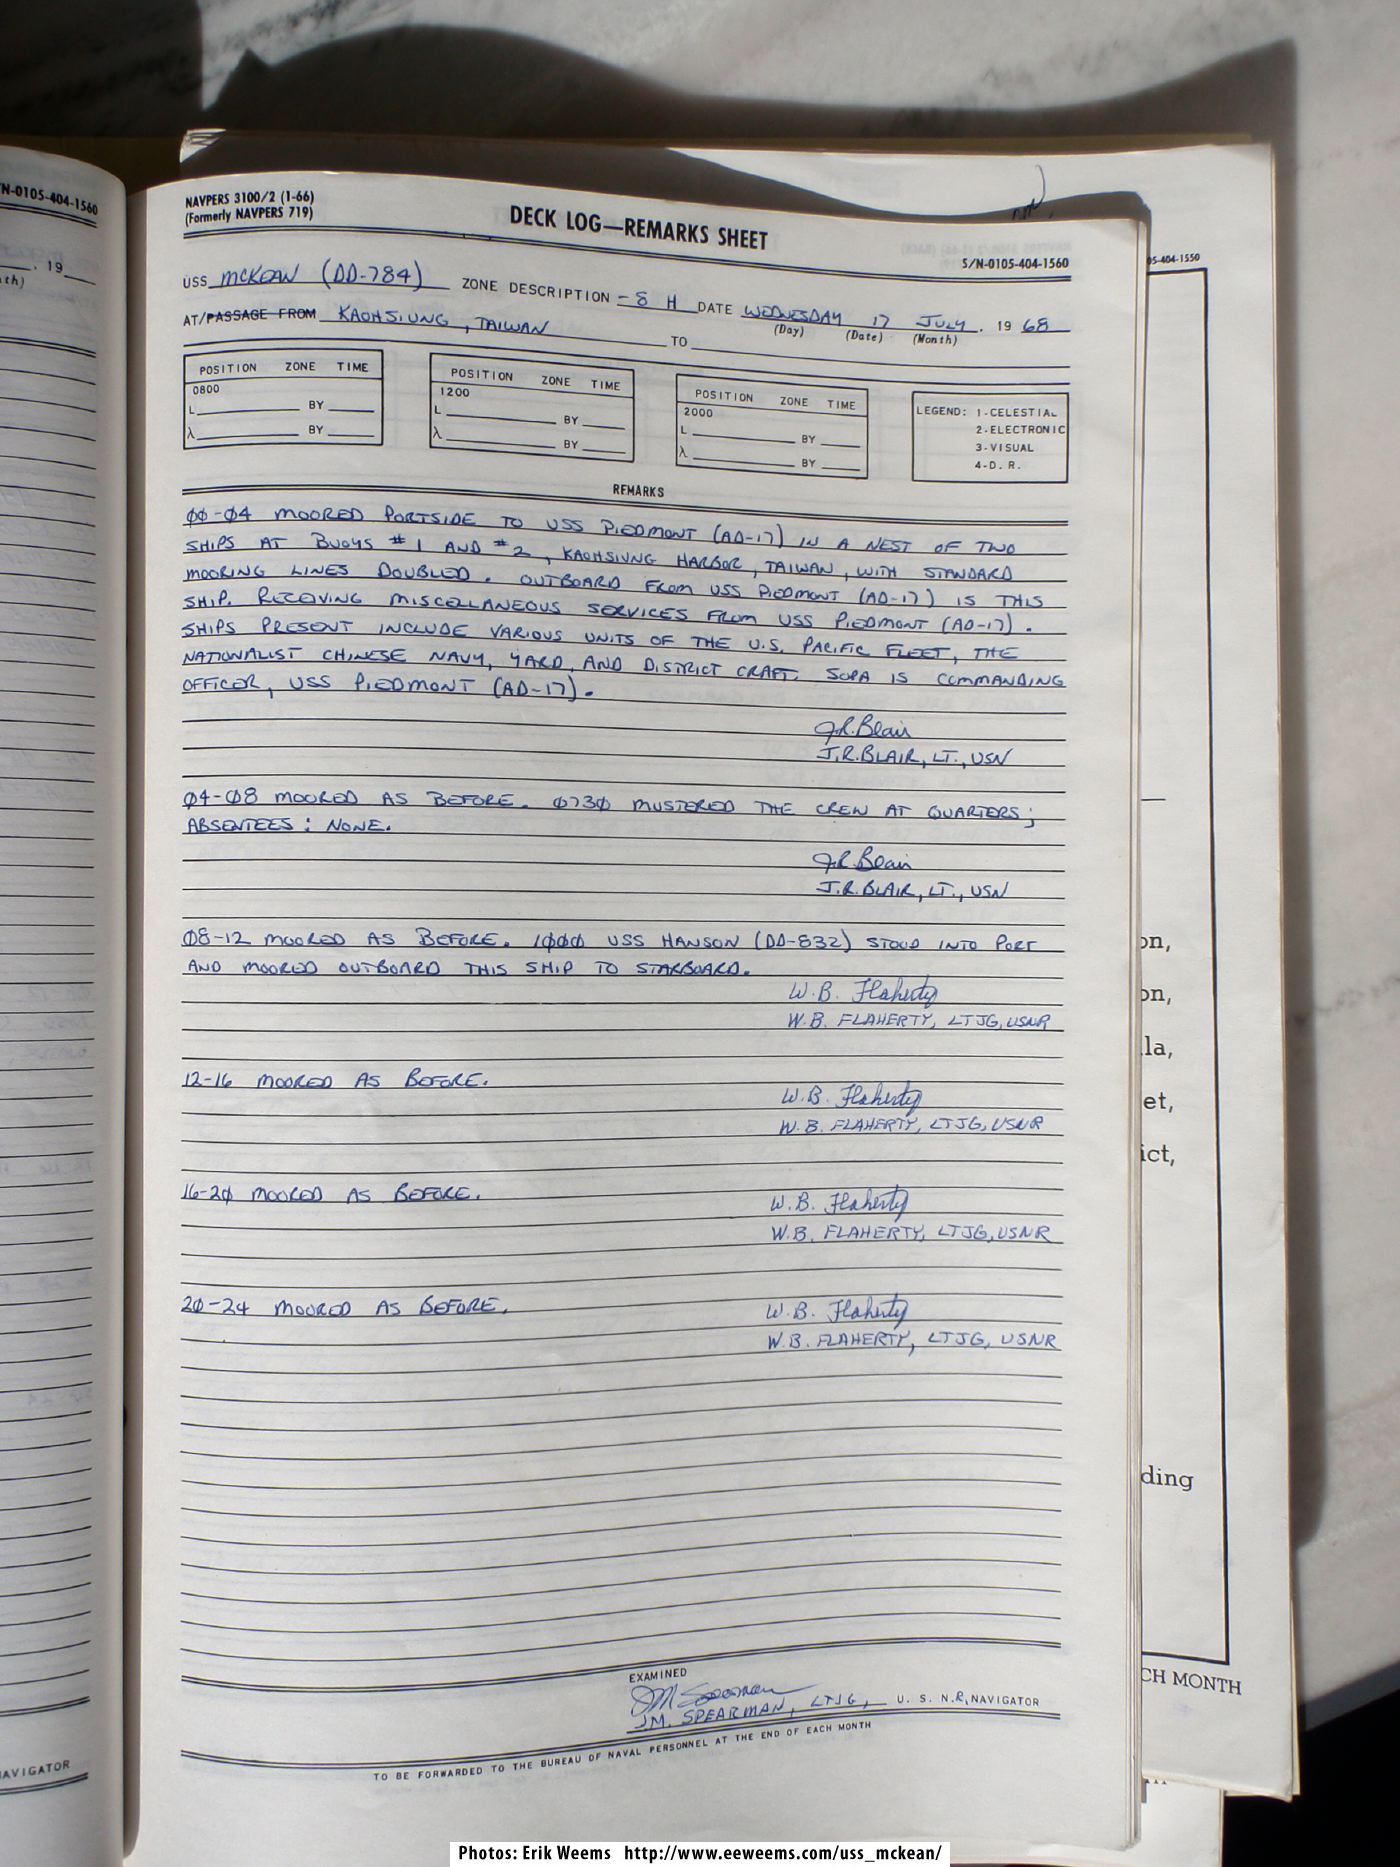 N-0105-404-1560
. 19
th)
AVIGATOR
NAVPERS 3100/2 (1-66)
(Formerly NAVPERS 719)
DECK LOG—REMARKS SHEET
S/N-0105-404-1560
USS MCKEAN (DD-784) ZONE DESCRIPTION -8 H DATE WEDNESDAY 17 JULY, 19 68
(Day) (Date) (Month)
AT/PASSAGE FROM KAOHSIUNG, TAIWAN TO
POSITION ZONE TIME
0800
L BY
λ BY
POSITION ZONE TIME
1200
L BY
λ BY
POSITION ZONE TIME
2000
L BY
λ BY
LEGEND: 1-CELESTIAL
2-ELECTRONIC
3-VISUAL
4-D. R.
REMARKS
00-04 MOORED PORTSIDE TO USS PIEDMONT (AD-17) IN A NEST OF TWO
SHIPS AT BUOYS #1 AND #2, KAOHSIUNG HARBOR, TAIWAN, WITH STANDARD
MOORING LINES DOUBLED. OUTBOARD FROM USS PIEDMONT (AD-17) IS THIS
SHIP. RECEIVING MISCELLANEOUS SERVICES FROM USS PIEDMONT (AD-17).
SHIPS PRESENT INCLUDE VARIOUS UNITS OF THE U.S. PACIFIC FLEET, THE
NATIONALIST CHINESE NAVY, YARD AND DISTRICT CRAFT. SOPA IS COMMANDING
OFFICER, USS PIEDMONT (AD-17).
J.R. Blair
J.R. BLAIR, LT., USN
04-08 MOORED AS BEFORE. 0730 MUSTERED THE CREW AT QUARTERS;
ABSENTEES: NONE.
J.R. Blair
J.R. BLAIR, LT., USN
08-12 MOORED AS BEFORE. 1000 USS HANSON (DD-832) STOOD INTO PORT
AND MOORED OUTBOARD THIS SHIP TO STARBOARD.
W.B. Flaherty
W.B. FLAHERTY, LTJG, USNR
12-16 MOORED AS BEFORE.
W.B. Flaherty
W.B. FLAHERTY, LTJG, USNR
16-20 MOORED AS BEFORE.
W.B. Flaherty
W.B. FLAHERTY, LTJG, USNR
20-24 MOORED AS BEFORE.
W.B. Flaherty
W.B. FLAHERTY, LTJG, USNR
EXAMINED
JM Spearman
J.M. SPEARMAN, LTJG, U. S. N.R, NAVIGATOR
TO BE FORWARDED TO THE BUREAU OF NAVAL PERSONNEL AT THE END OF EACH MONTH
05-404-1550
on,
on,
la,
et,
ict,
ding
CH MONTH
Photos: Erik Weems http://www.eeweems.com/uss_mckean/